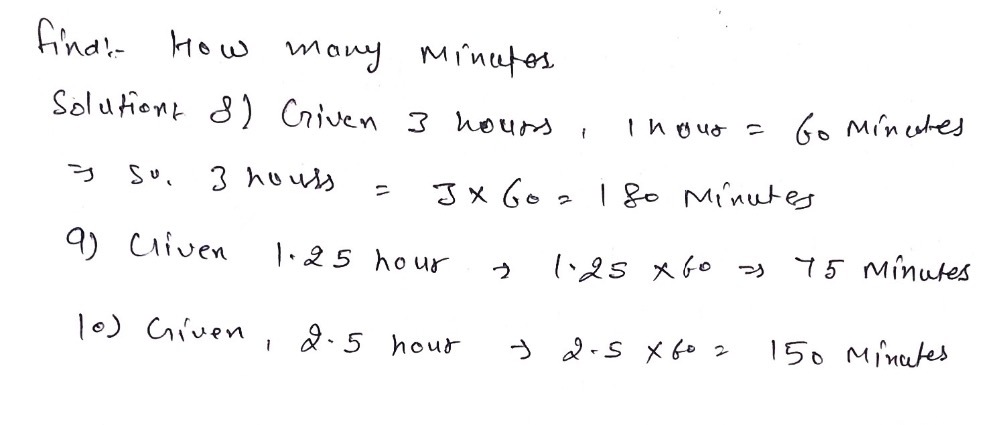 find:- How many Minutes
Solution: 8) Given 3 hours, 1 hour = 60 Minutes
⇒ So. 3 hours = 3 × 60 = 180 Minutes
9) Given 1.25 hour → 1.25 × 60 ⇒ 75 Minutes
10) Given, 2.5 hour → 2.5 × 60 = 150 Minutes